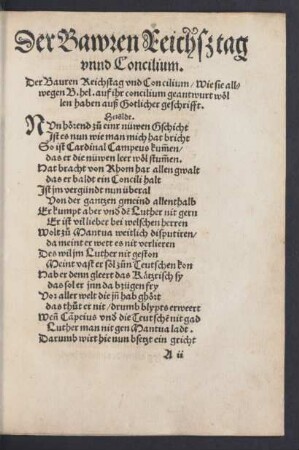 Der Bawren Reichsztag
vnnd Concilium.
Der Bauren Reichstag vnd Concilium / Wie sie all=
wegen B. hel. auf ihr concilium geantwurt wöl
len haben auß Gotlicher geschrifft.
Herold.
NUn hörend zů einr nüwen Gschicht
Ist es nun wie man mich hat bricht
So ist Cardinal Campeus kum̃en /
das er die nüwen leer wöl stum̃en.
Hat bracht von Rhom har allen gwalt
das er bald ein Concili halt
Ist jm vergündt nun überal
Von der gantzen gmeind allenthalb
Er kumpt aber vnd dẽ Luther nit gern
Er ist vil lieber bei welschen herren
Wolt zů Mantua weitlich disputiren /
da meint er wett es nit verlieren
Des wil jm Luther nit geston
Meint vast er söl zůn Teutschen kon
Hab er denn gleert das Kätzrisch sy
das sol er jnn da bzügen fry
Vor aller welt die jñ hab ghört
das thůt er nit / drumb blypts erweert
Weñ Cãpeius vnd die Teutschẽ nit gad
Luther man nit gen Mantua ladt.
Darumb wirt hie nun bsetzt ein gricht
A ii